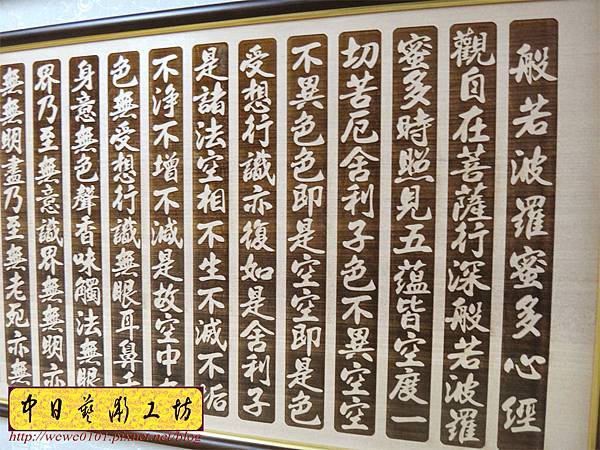 般若波羅蜜多心經
觀自在菩薩行深般若波羅
蜜多時照見五蘊皆空度一
切苦厄舍利子色不異空空
不異色色即是空空即是色
受想行識亦復如是舍利子
是諸法空相不生不滅不垢
不淨不增不減是故空中
色無受想行識無眼耳鼻
身意無色聲香味觸法無眼
界乃至無意識界無無明亦
無無明盡乃至無老死亦無
中日藝彫工坊
http://wewe0101.pixnet.net/blog